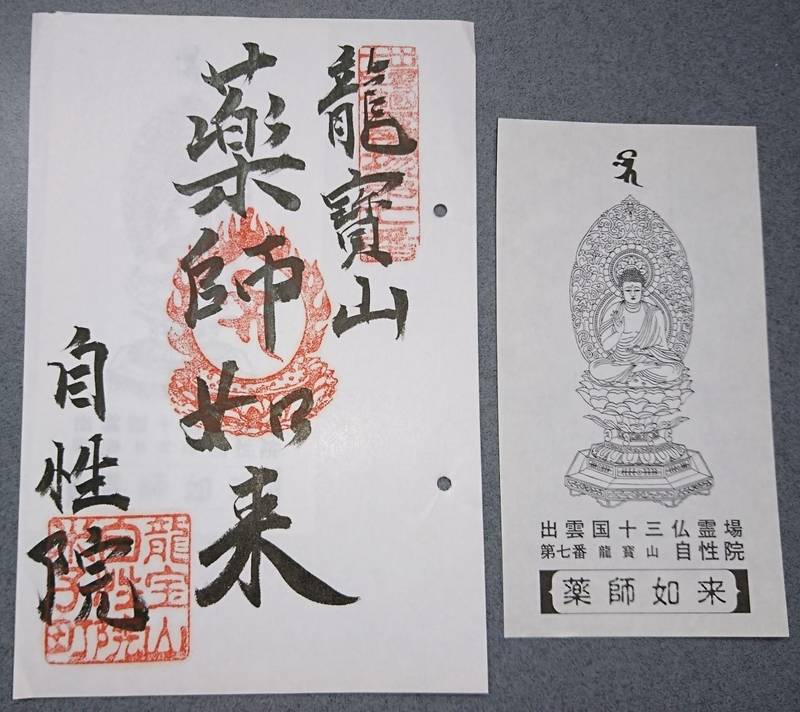 龍寶山
薬師如来
自性院
龍宝山
自性院
出雲国十三仏霊場
第七番 龍寶山 自性院
薬師如来